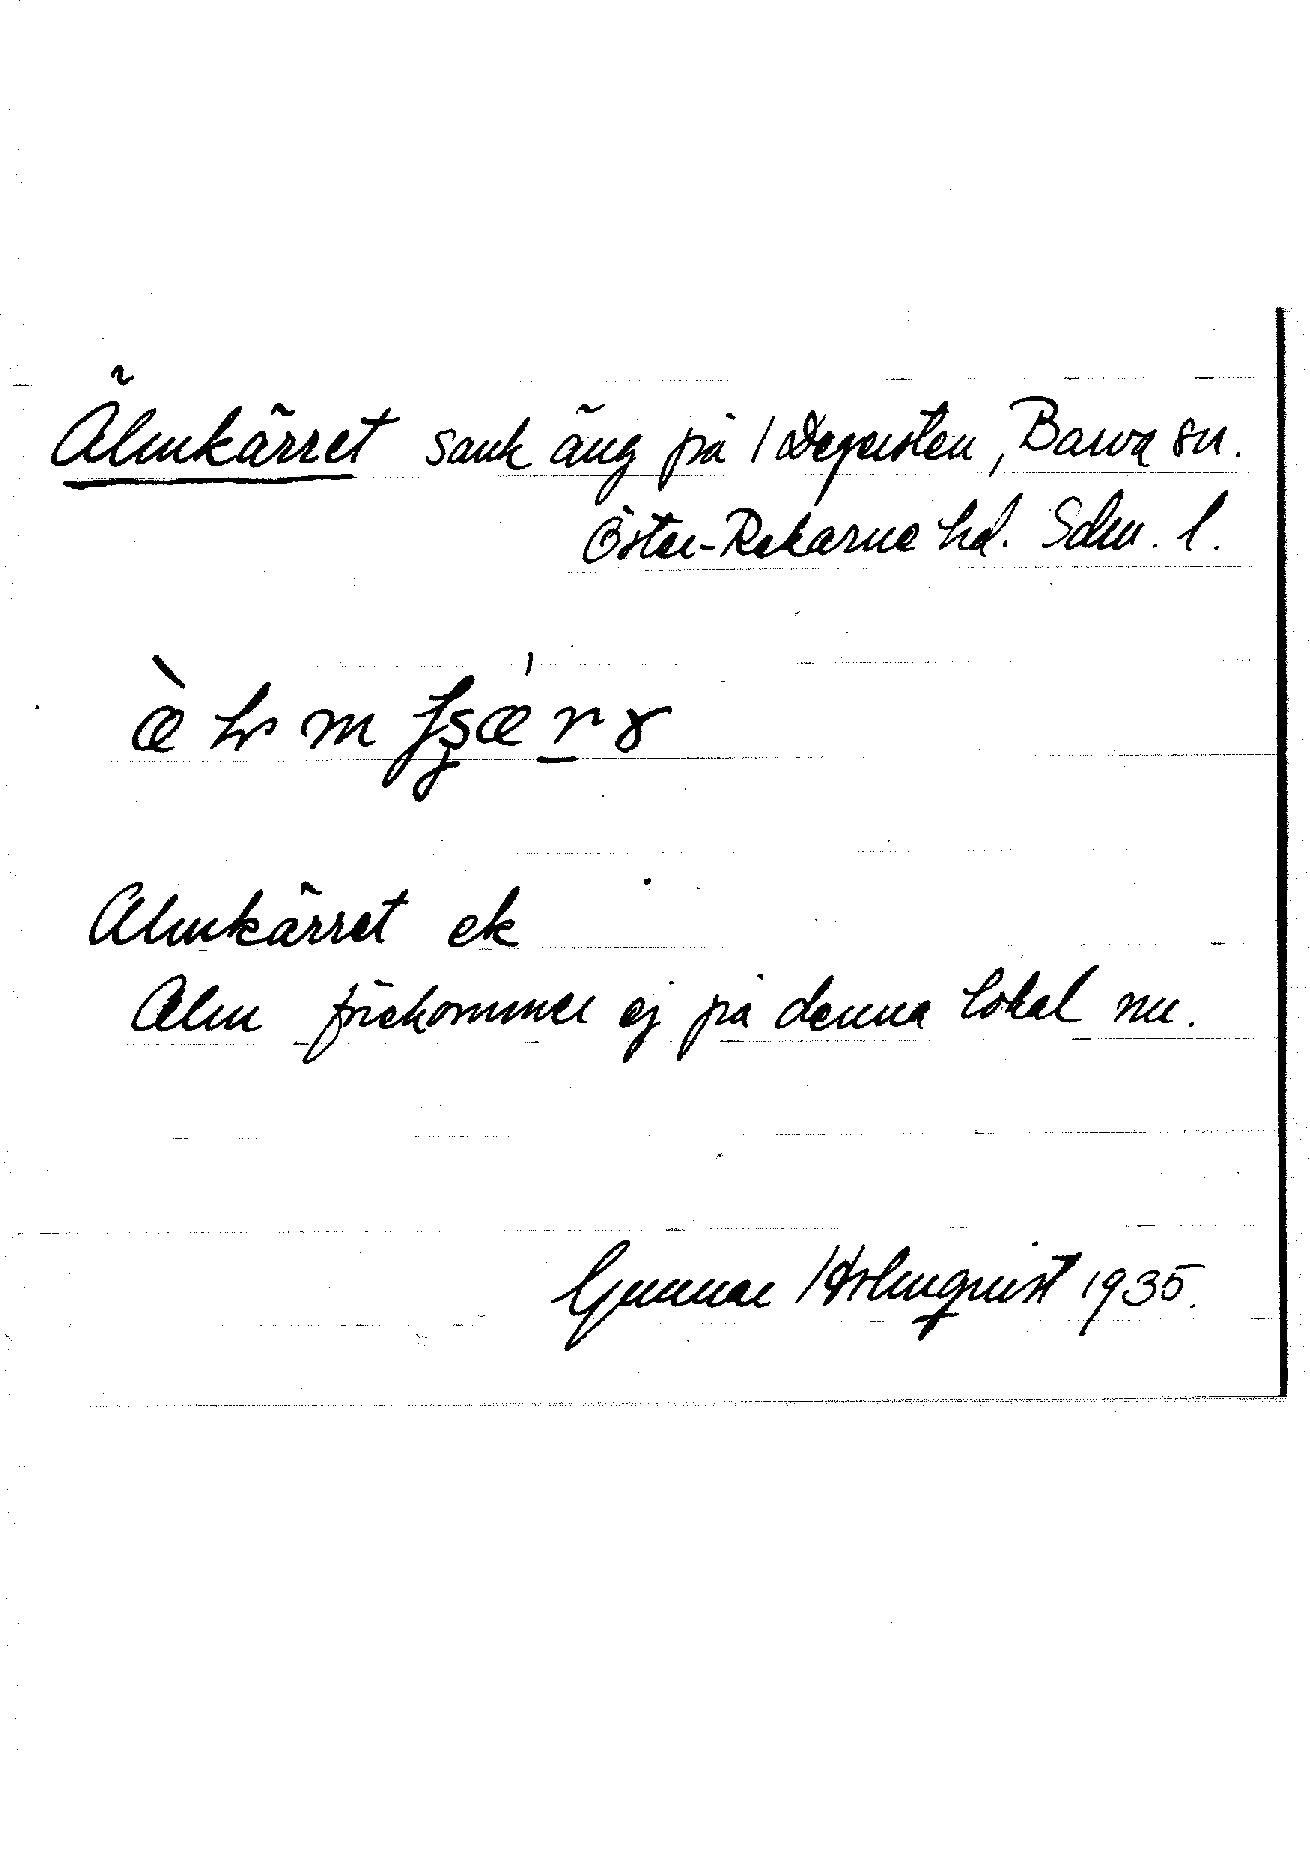 Älmkärret sank äng på 1 Degersten, Barva sn.
Öster-Rekarne hd. Sdm. l.
Almkärret ek
Alm förekommer ej på denna lokal nu.
Gunnar Holmquist 1935.